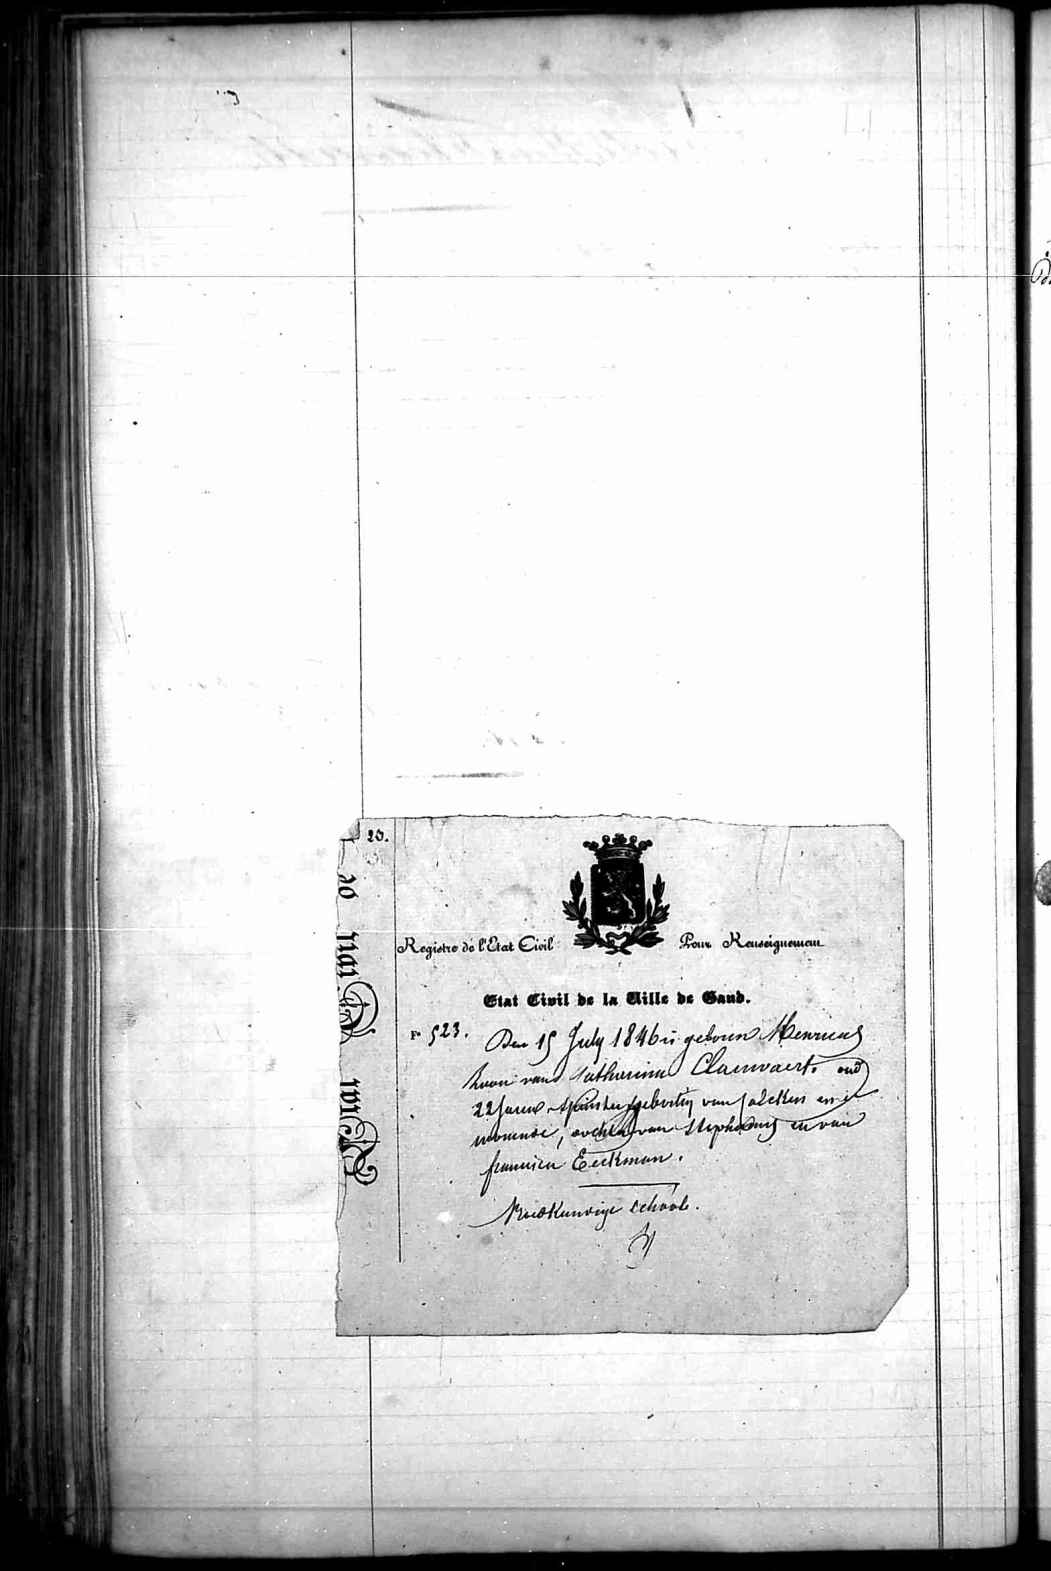 23.
Registre de l'Etat Civil Pour Renseignement
Etat Civil de la Ville de Gand.
F° 523. Den 15 July 1846 is geboren Henricus
Zoon van Catharina Claeuwaert, oud
22 Jaeren, geboortig van
, dochter van Stephanus en van
francisca Eeckman.
Vroedkundige school.